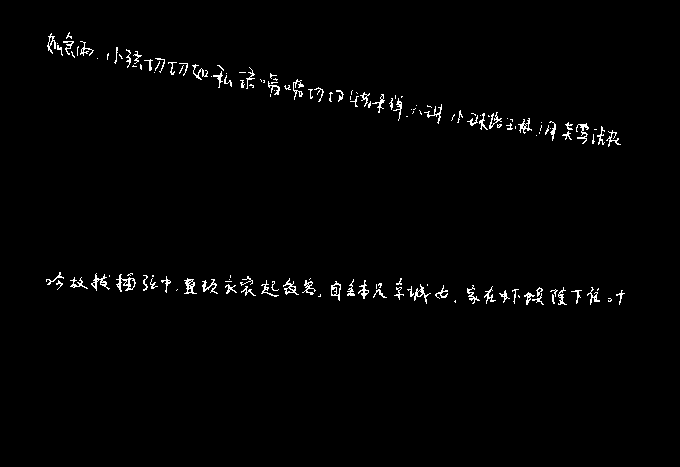 如急雨,小弦切切如私语嘈嘈切切错杂弹,大珠小珠落玉盘,间关莺语花
吟放拨插弦中,整顿衣裳起敛容,自言本是京城女,家在虾蟆陵下住。十